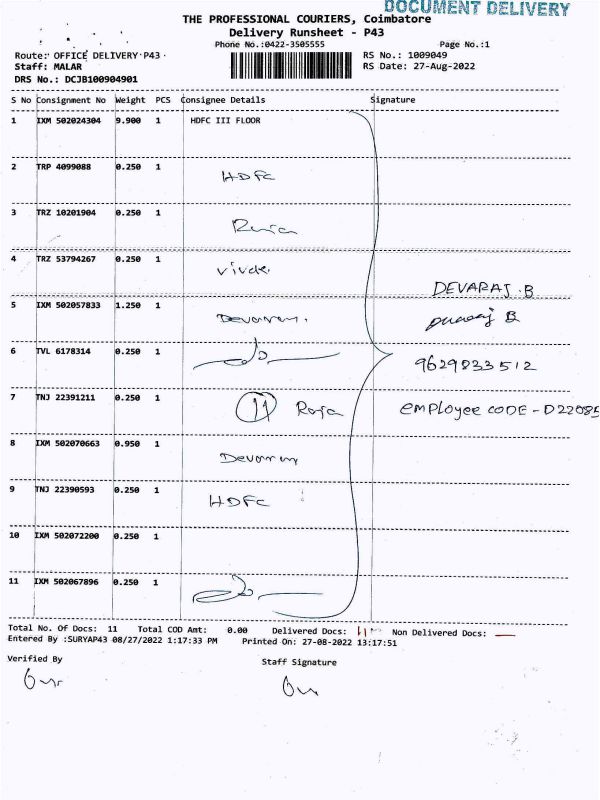 DOCUMENT DELIVERY
THE PROFESSIONAL COURIERS, Coimbatore
Delivery Runsheet - P43
Phone No.:0422-3505555 Page No.:1
Route: OFFICE DELIVERY P43 RS No.: 1009049
Staff: MALAR RS Date: 27-Aug-2022
DRS No.: DCJB100904901
S No Consignment No Weight PCS Consignee Details Signature
1 IXM 502024304 9.900 1 HDFC III FLOOR
2 TRP 4099088 0.250 1 HDFC
3 TRZ 10201904 0.250 1
4 TRZ 53794267 0.250 1
DEVARAJ.B
5 IXM 502057833 1.250 1
6 TVL 6178314 0.250 1
9629833512
7 TNJ 22391211 0.250 1 11 Raja EMPLOYEE CODE - D22085
8 IXM 502070663 0.950 1
9 TNJ 22390593 0.250 1 HDFC
10 IXM 502072200 0.250 1
11 IXM 502067896 0.250 1
Total No. Of Docs: 11 Total COD Amt: 0.00 Delivered Docs: 11 Non Delivered Docs: —
Entered By :SURYAP43 08/27/2022 1:17:33 PM Printed On: 27-08-2022 13:17:51
Verified By Staff Signature